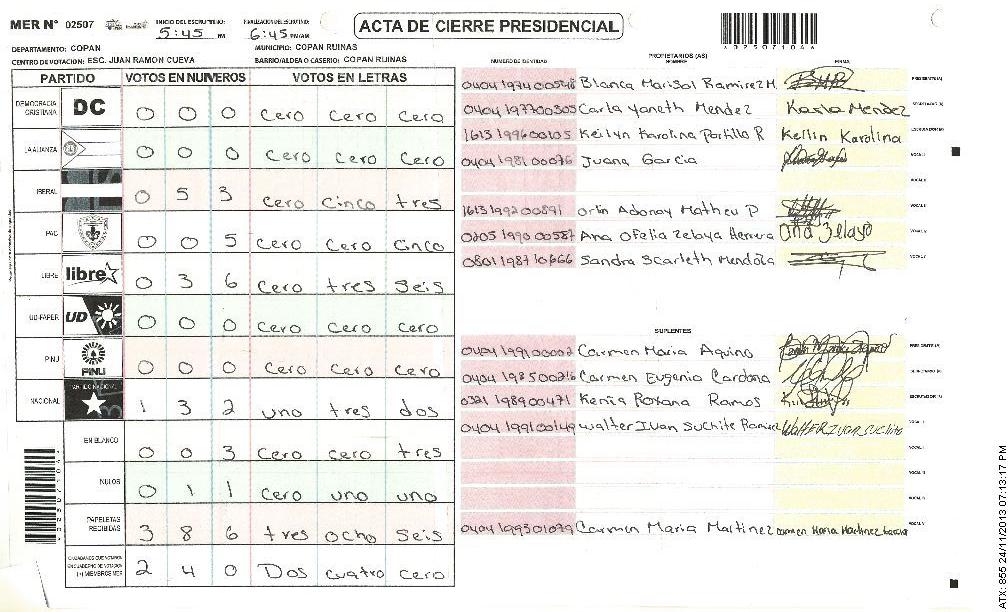 MER Nº 02507
INICIO DEL ESCRUTINIO: 5:45 PM
FINALIZACION DEL ESCRUTINIO: 6:45 PM/AM
ACTA DE CIERRE PRESIDENCIAL
DEPARTAMENTO: COPAN
MUNICIPIO: COPAN RUINAS
CENTRO DE VOTACION: ESC. JUAN RAMON CUEVA
BARRIO/ALDEA O CASERIO: COPAN RUINAS
PARTIDO VOTOS EN NUMEROS VOTOS EN LETRAS
DEMOCRACIA CRISTIANA DC 0 0 0 Cero Cero Cero
LA ALIANZA 0 0 0 Cero Cero Cero
IBERAL 0 5 3 Cero Cinco tres
PAC 0 0 5 Cero Cero Cinco
LIBRE libre 0 3 6 Cero tres Seis
UD-FAPER UD 0 0 0 Cero Cero Cero
PINU PINU 0 0 0 Cero Cero Cero
NACIONAL PARTIDO NACIONAL 1 3 2 uno tres dos
EN BLANCO 0 0 3 Cero Cero tres
NULOS 0 1 1 Cero uno uno
PAPELETAS RECIBIDAS 3 8 6 tres ocho Seis
CIUDADANOS QUE VOTARON EN CUADERNO DE VOTACION (+) MIEMBROS MER 2 4 0 Dos cuatro cero
PROPIETARIOS (AS)
NUMERO DE IDENTIDAD NOMBRE FIRMA
0404197400546 Blanca Marisol Ramirez M. PRESIDENTE(A)
0404197700305 Carla Yaneth Mendez Karla Mendez SECRETARIO (A)
1613199600105 Keilyn Karolina Portillo R Kellin Karolina ESCRUTADOR (A)
0404198100076 Juana Garcia VOCAL I
VOCAL II
1613199200891 Orlin Adonay Matheu P VOCAL III
0205199000587 Ana Ofelia Zelaya Herrera Ana Zelaya VOCAL IV
0801198710666 Sandra Scarleth Mendoza VOCAL V
SUPLENTES
0404199100002 Carmen Maria Aquino PRESIDENTE (A)
0404198500216 Carmen Eugenia Cardona SECRETARIO (A)
0321198900471 Kenia Roxana Ramos ESCRUTADOR (A)
0404199100149 Walter Ivan Suchite Ramirez WalTER Ivan Suchite VOCAL I
VOCAL II
VOCAL III
VOCAL IV
0404199301079 Carmen Maria Martinez Carmen Maria Martinez Garcia VOCAL V
ATX: 855 24/11/2013 07:13:17 PM